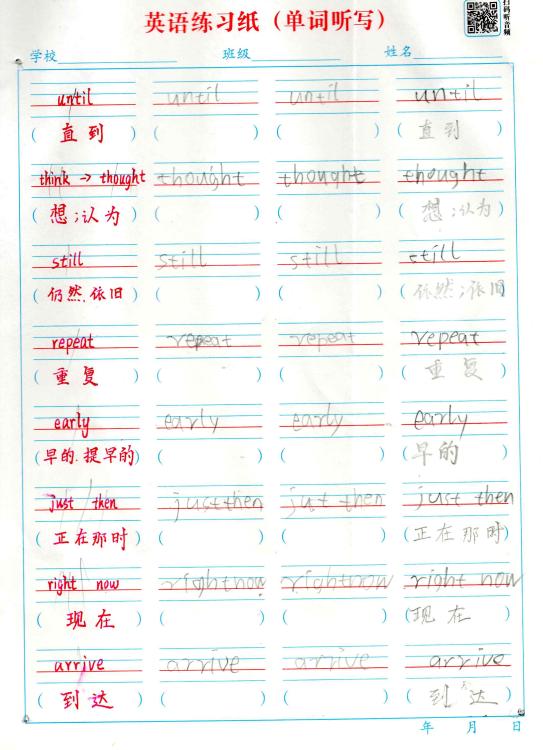 英语练习纸（单词听写）
扫码听音频
学校 班级 姓名
until until until until
( 直到 ) ( ) ( ) ( 直到 )
think → thought thought thought thought
( 想；认为 ) ( ) ( ) ( 想；认为 )
still still still still
( 仍然.依旧 ) ( ) ( ) ( 仍然；依旧 )
repeat repeat repeat repeat
( 重复 ) ( ) ( ) ( 重复 )
early early early early
( 早的.提早的 ) ( ) ( ) ( 早的 )
just then just then jut then just then
( 正在那时 ) ( ) ( ) ( 正在那时 )
right now right now right now right now
( 现在 ) ( ) ( ) ( 现在 )
arrive arrive arrive arrive
( 到达 ) ( ) ( ) ( 到达 )
年 月 日